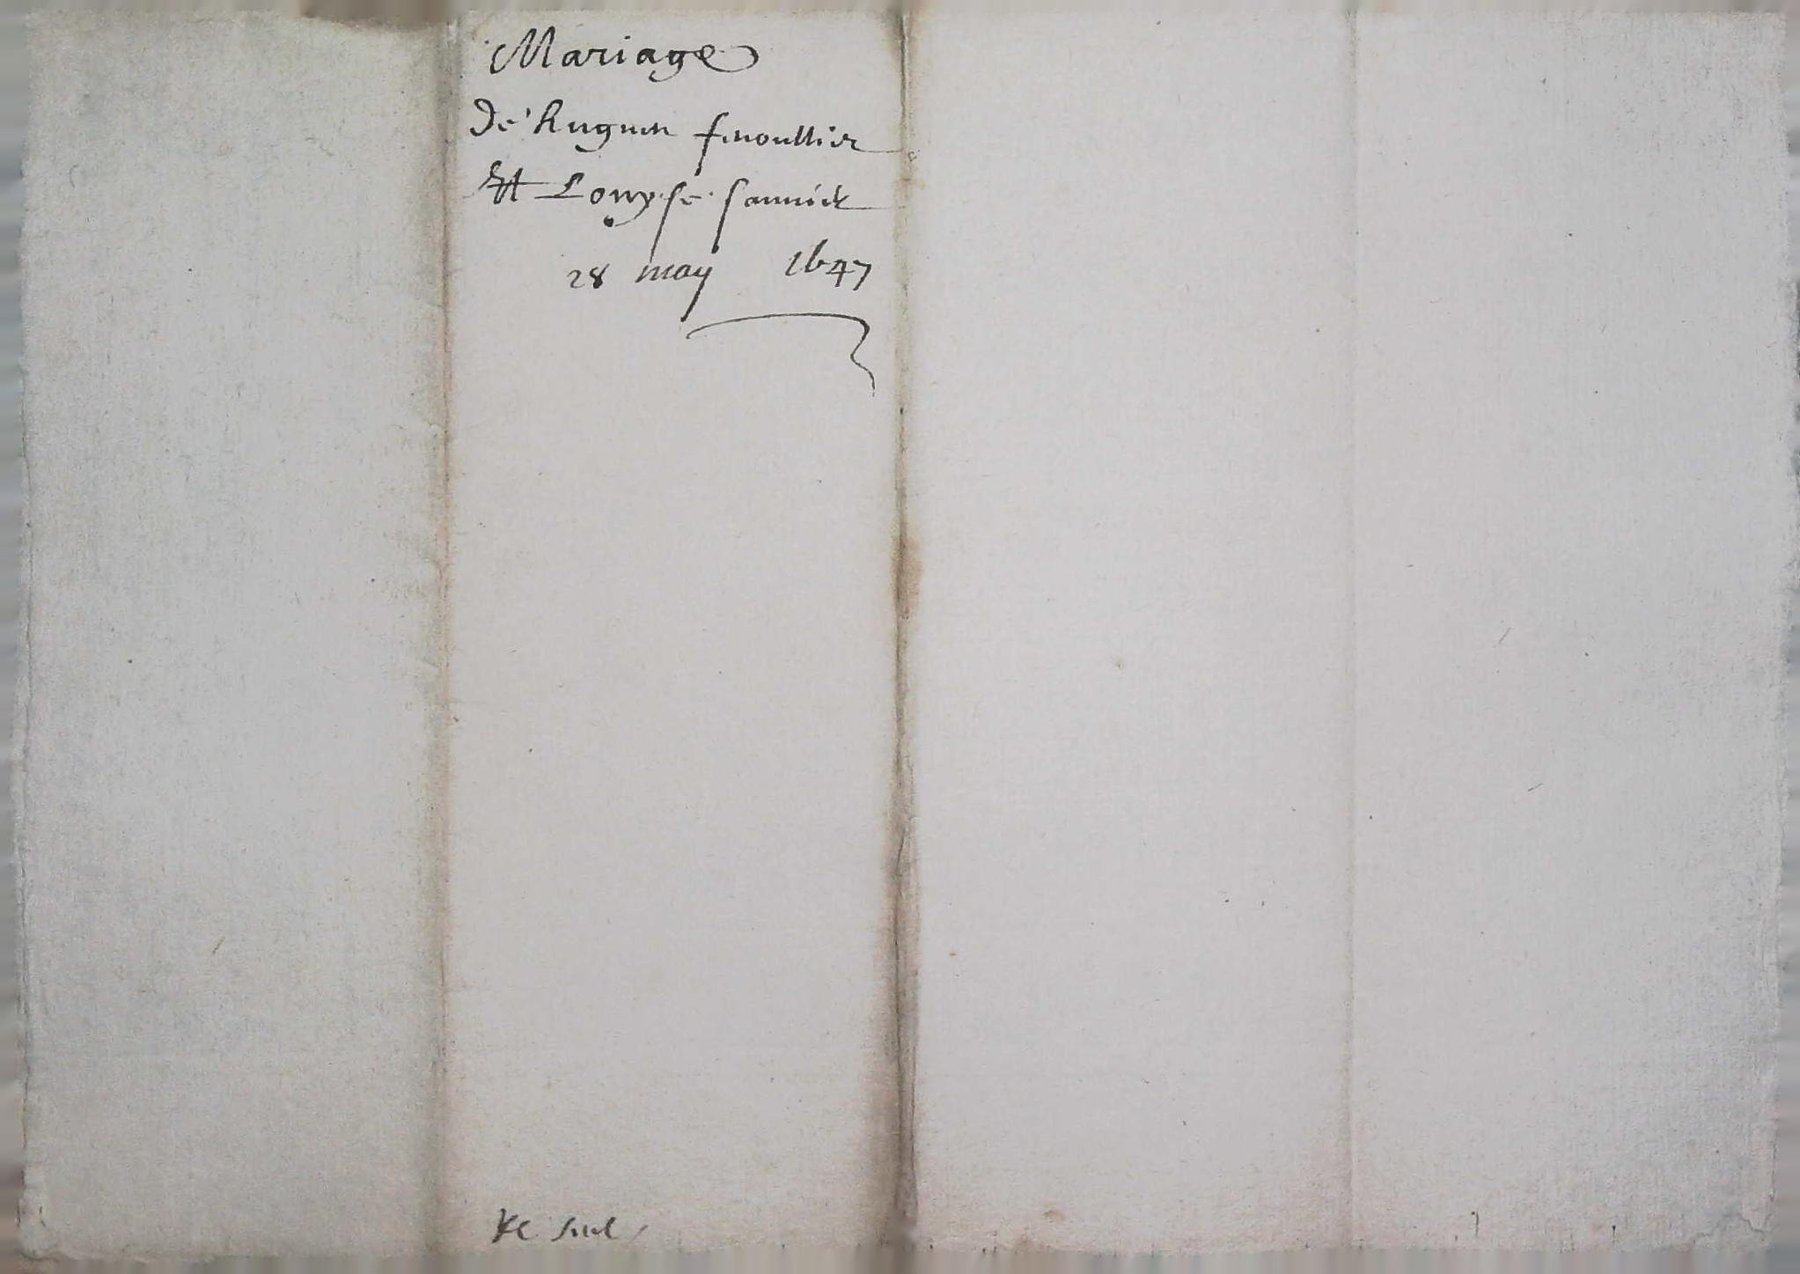 Mariage
De hugues fenoullier
Et Louyse sauniet
28 may 1647